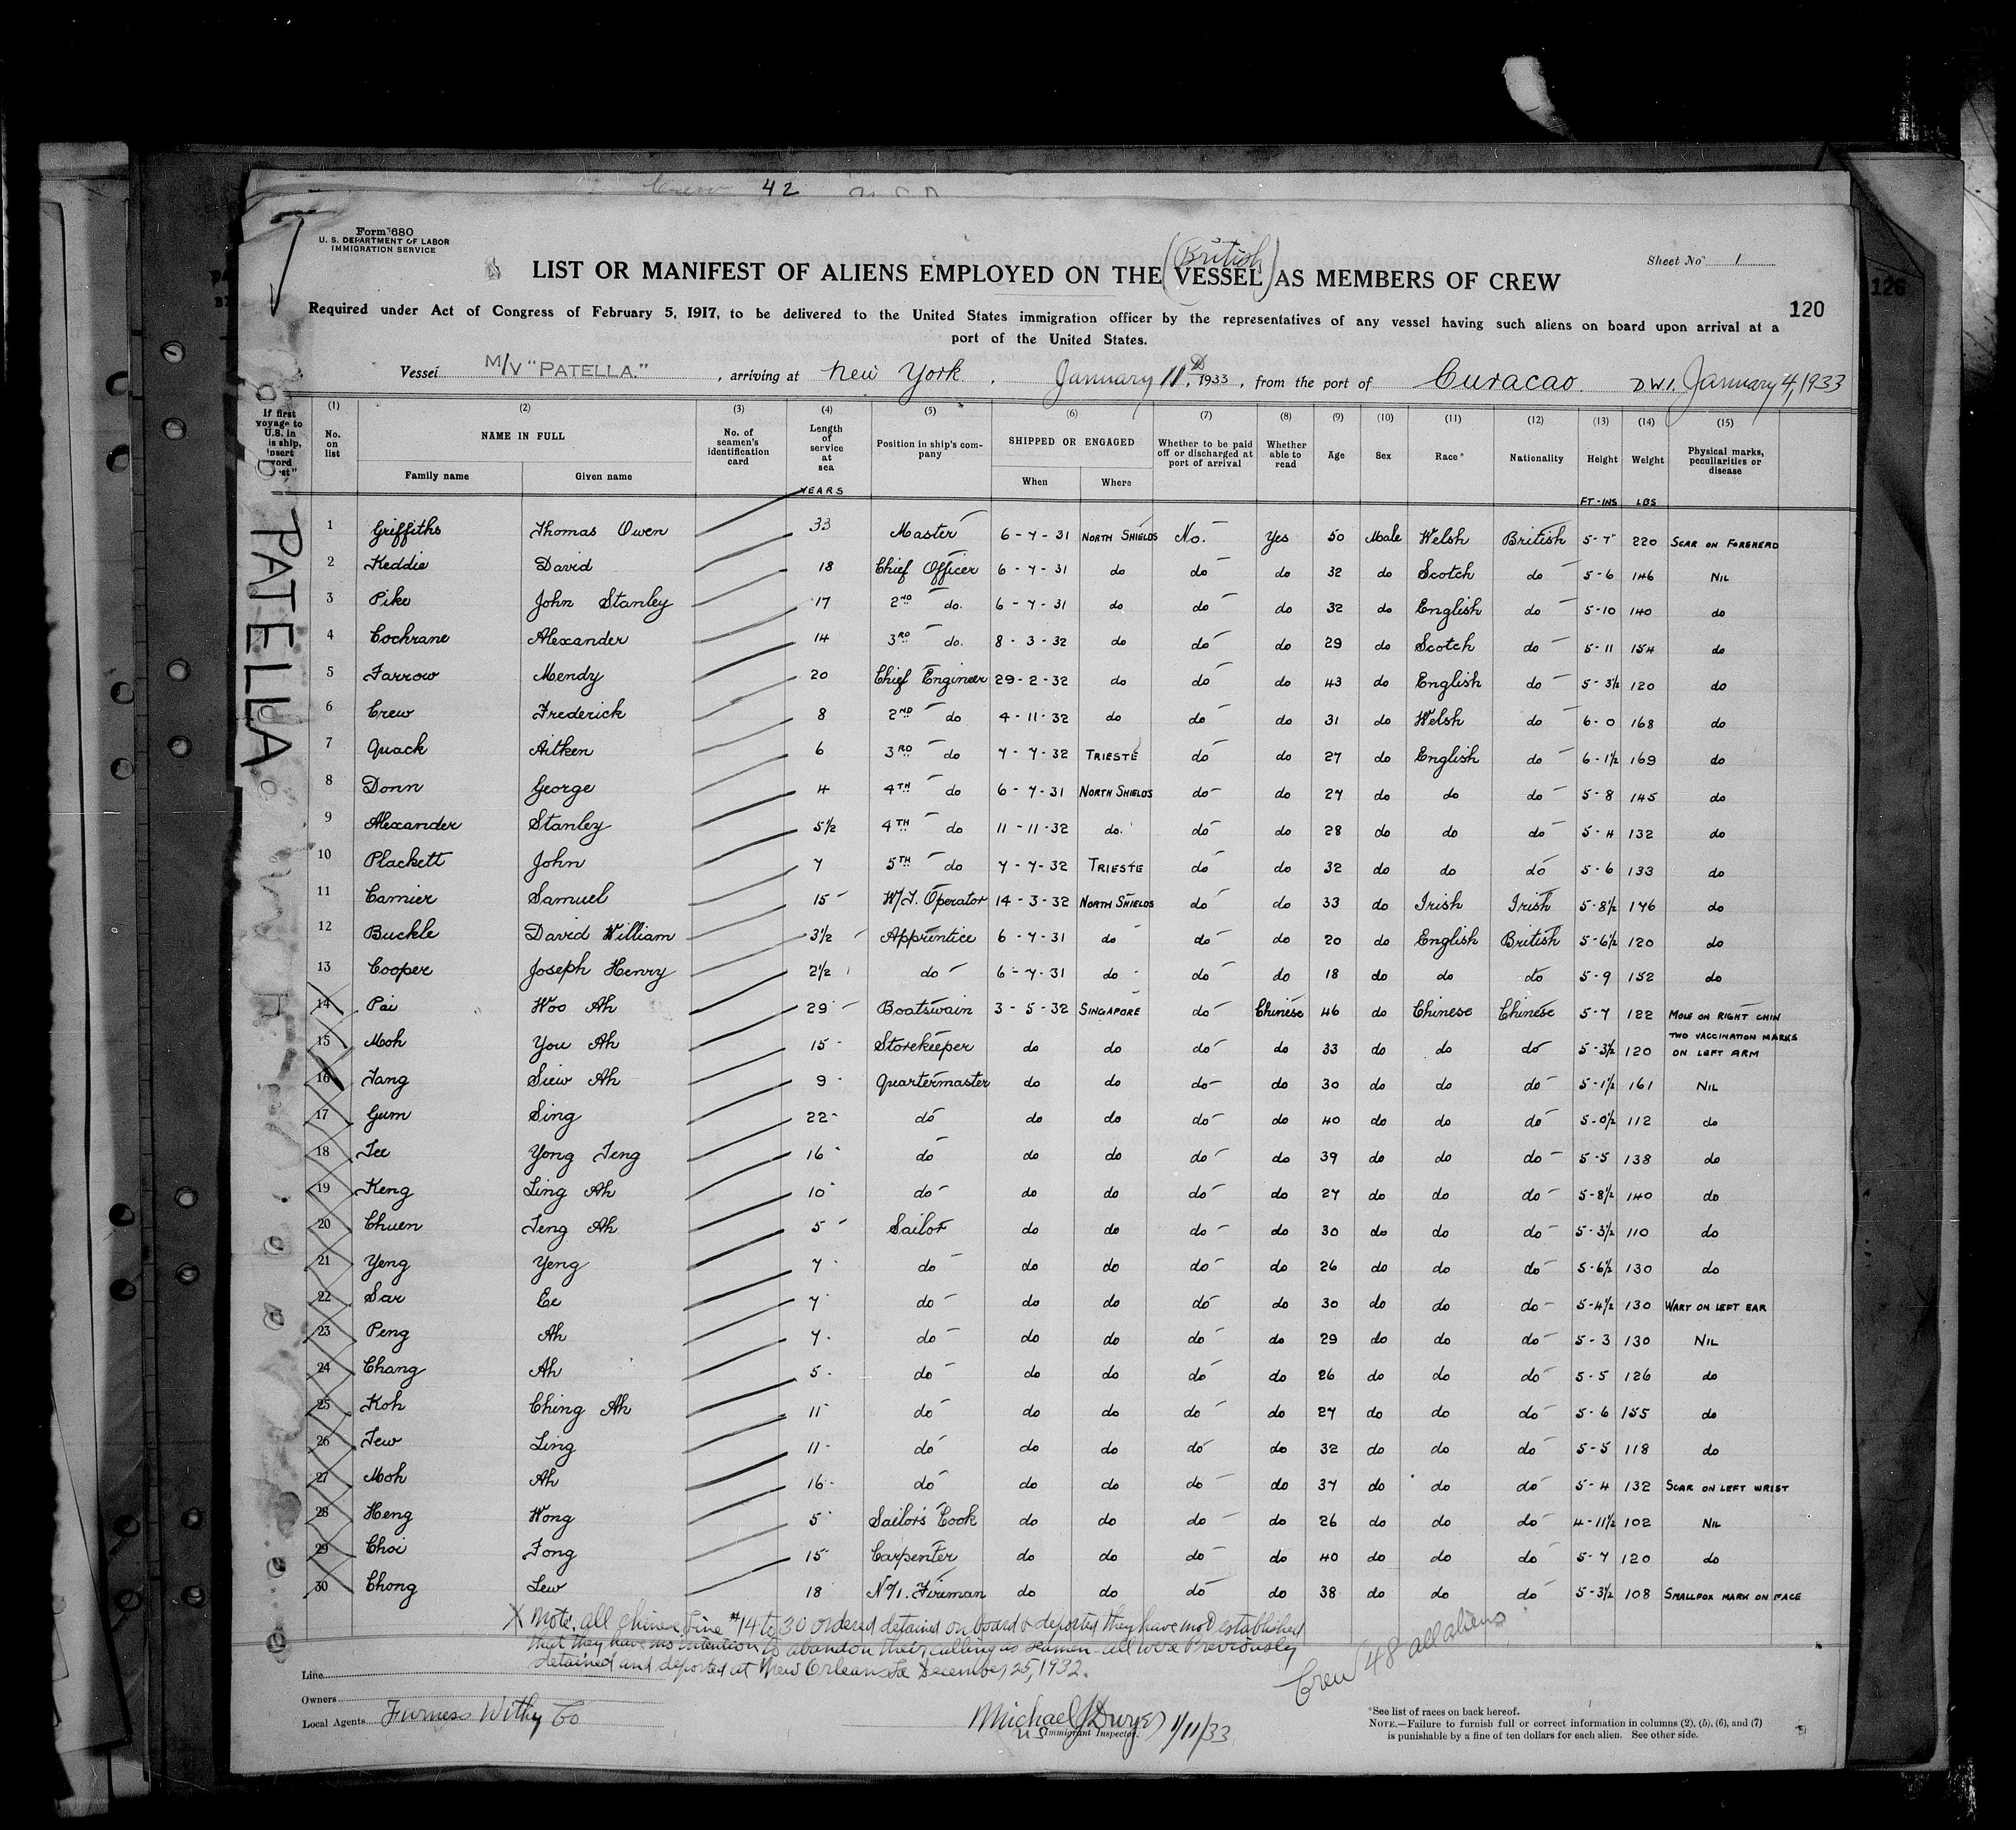 Crew 42
Form 680
U. S. DEPARTMENT OF LABOR
IMMIGRATION SERVICE
Sheet No 1
(British)
LIST OR MANIFEST OF ALIENS EMPLOYED ON THE VESSEL AS MEMBERS OF CREW
120
126
Required under Act of Congress of February 5, 1917, to be delivered to the United States immigration officer by the representatives of any vessel having such aliens on board upon arrival at a
port of the United States.
Vessel M/V "PATELLA." , arriving at New York , January 11, 1933 , from the port of Curacao D.W.I. January 4, 1933
(1) (2) (3) (4) (5) (6) (7) (8) (9) (10) (11) (12) (13) (14) (15)
No. on list NAME IN FULL Family name Given name No. of seamen's identification card Length of service at sea Position in ship's company SHIPPED OR ENGAGED When Where Whether to be paid off or discharged at port of arrival Whether able to read Age Sex Race* Nationality Height Weight Physical marks, peculiarities or disease
YEARS FT-INS LBS
PATELLA
1 Griffiths Thomas Owen 33 Master 6-7-31 NORTH SHIELDS No. Yes 50 Male Welsh British 5-7 220 SCAR ON FOREHEAD
2 Keddie David 18 Chief Officer 6-7-31 do do do 32 do Scotch do 5-6 146 NIL
3 Pike John Stanley 17 2ND do. 6-7-31 do do do 32 do English do 5-10 140 do
4 Cochrane Alexander 14 3RD do. 8-3-32 do do do 29 do Scotch do 5-11 154 do
5 Farrow Mendy 20 Chief Engineer 29-2-32 do do do 43 do English do 5-3½ 120 do
6 Crew Frederick 8 2ND do 4-11-32 do do do 31 do Welsh do 6-0 168 do
7 Quack Aitken 6 3RD do 7-7-32 TRIESTE do do 27 do English do 6-1½ 169 do
8 Donn George 4 4TH do 6-7-31 NORTH SHIELDS do do 27 do do do 5-8 145 do
9 Alexander Stanley 5½ 4TH do 11-11-32 do. do do 28 do do do 5-4 132 do
10 Plackett John 7 5TH do 7-7-32 TRIESTE do do 32 do do do 5-6 133 do
11 Camier Samuel 15 W/T. Operator 14-3-32 NORTH SHIELDS do do 33 do Irish Irish 5-8½ 176 do
12 Buckle David William 3½ Apprentice 6-7-31 do do do 20 do English British 5-6½ 120 do
13 Cooper Joseph Henry 2½ do 6-7-31 do do do 18 do do do 5-9 152 do
14 Pai Woo Ah 29 Boatswain 3-5-32 SINGAPORE do Chinese 46 do Chinese Chinese 5-7 122 MOLE ON RIGHT CHIN
15 Moh You Ah 15 Storekeeper do do do do 33 do do do 5-3½ 120 TWO VACCINATION MARKS ON LEFT ARM
16 Tang Siew Ah 9 Quartermaster do do do do 30 do do do 5-1½ 161 NIL
17 Gum Sing 22 do do do do do 40 do do do 5-0½ 112 do
18 Tee Yong Teng 16 do do do do do 39 do do do 5-5 138 do
19 Keng Ling Ah 10 do do do do do 27 do do do 5-8½ 140 do
20 Chuen Teng Ah 5 Sailor do do do do 30 do do do 5-3½ 110 do
21 Yeng Yeng 7 do do do do do 26 do do do 5-6½ 130 do
22 Sar Ee 7 do do do do do 30 do do do 5-4½ 130 WART ON LEFT EAR
23 Peng Ah 7 do do do do do 29 do do do 5-3 130 NIL
24 Chang Ah 5 do do do do do 26 do do do 5-5 126 do
25 Koh Ching Ah 11 do do do do do 27 do do do 5-6 155 do
26 Tew Ling 11 do do do do do 32 do do do 5-5 118 do
27 Moh Ah 16 do do do do do 37 do do do 5-4 132 SCAR ON LEFT WRIST
28 Heng Wong 5 Sailors Cook do do do do 26 do do do 4-11½ 102 NIL
29 Choi Fong 15 Carpenter do do do do 40 do do do 5-7 120 do
30 Chong Lew 18 No 1. Fireman do do do do 38 do do do 5-3½ 108 SMALLPOX MARK ON FACE
X Note, all chinese Line #14 to 30 ordered detained on board & deported they have not established
that they have no intention to abandon their calling as seamen all were Previously
detained and deported at New Orleans La December 25, 1932.
Crew 48 all aliens
Line
Owners
Local Agents Furness Withy Co
Michael J Dwyer 1/11/33
U.S. Immigrant Inspector.
*See list of races on back hereof.
NOTE.—Failure to furnish full or correct information in columns (2), (5), (6), and (7)
is punishable by a fine of ten dollars for each alien. See other side.